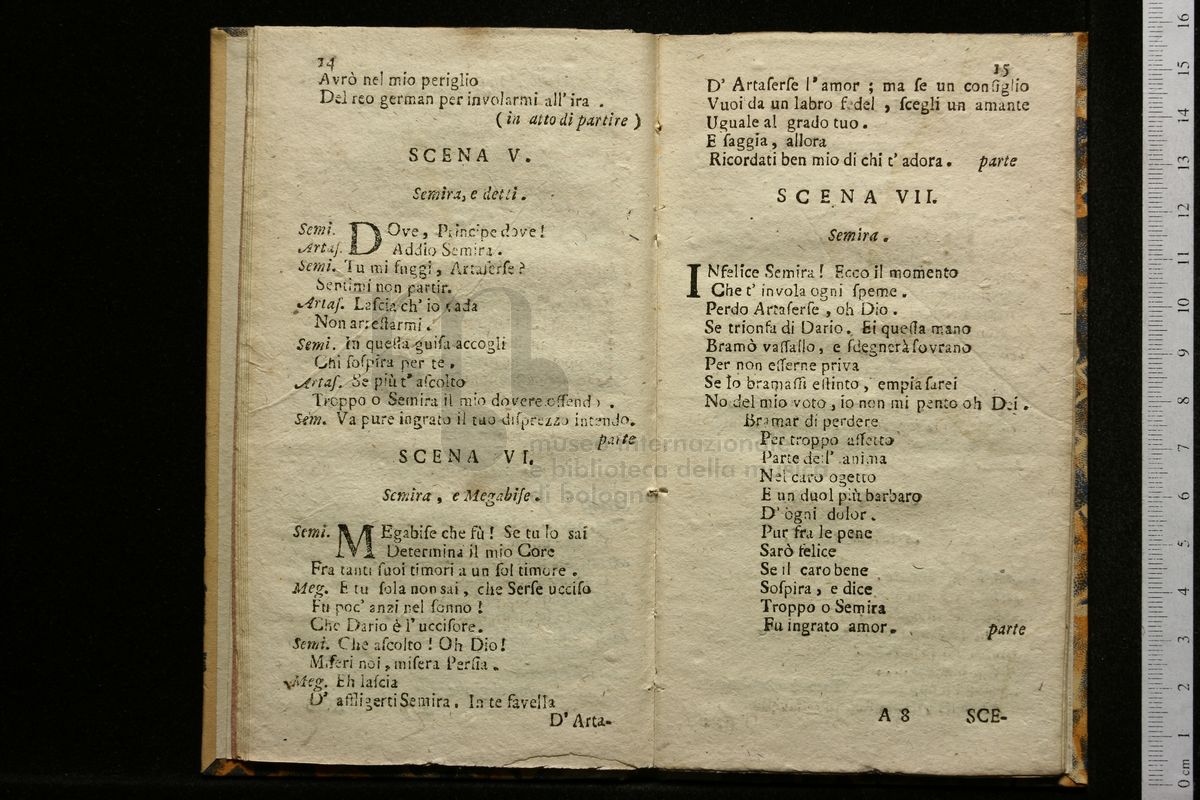 14
Avrò nel mio periglio
Del reo german per involarmi all' ira .
( in atto di partire )
SCENA V.
Semira, e detti .
Semi. DOve, Principe dove!
Artaſ. Addio Semira .
Semi. Tu mi fuggi, Artaſerſe?
Sentimi non partir.
Artaſ. Laſcia ch' io cada
Non arreſtarmi .
Semi. In queſta guiſa accogli
Chi ſoſpira per te .
Artaſ. Se più t' aſcolto
Troppo o Semira il mio dovere offendo .
Sem. Va pure ingrato il tuo diſprezzo intendo.
parte
SCENA VI.
Semira , e Megabiſe .
Semi. MEgabiſe che fù! Se tu lo sai
Determina il mio Core
Fra tanti ſuoi timori a un ſol timore .
Meg. E tu ſola non sai, che Serſe ucciſo
Fu poc' anzi nel ſonno !
Che Dario è l' ucciſore.
Semi. Che aſcolto ! Oh Dio!
Miſeri noi, miſera Perſia .
Meg. Eh laſcia
D' affligerti Semira. In te favella
D' Arta-
15
D' Artaſerſe l' amor ; ma ſe un conſiglio
Vuoi da un labro fedel , ſcegli un amante
Uguale al grado tuo .
E ſaggia, allora
Ricordati ben mio di chi t' adora . parte
SCENA VII.
Semira .
INfelice Semira! Ecco il momento
Che t' invola ogni ſpeme .
Perdo Artaſerſe , oh Dio .
Se trionfa di Dario. Ei queſta mano
Bramò vaſſallo, e ſdegnerà ſovrano
Per non eſſerne priva
Se lo bramaſſi eſtinto, empia ſarei
No del mio voto, io non mi pento oh Dei .
Bramar di perdere
Per troppo affetto
Parte dell' anima
Nel caro ogetto
E un duol più barbaro
D' ogni dolor .
Pur fra le pene
Sarò felice
Se il caro bene
Soſpira, e dice
Troppo o Semira
Fu ingrato amor. parte
A 8 SCE-
museo internazionale
e biblioteca della musica
di bologna
16
15
14
13
12
11
10
9
8
7
6
5
4
3
2
1
0 cm